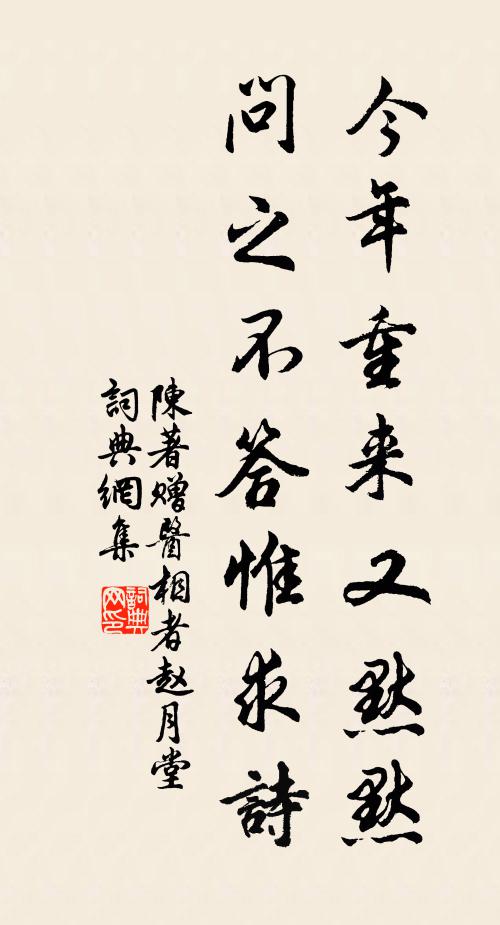 今年重来又默默
問之不答惟求詩
陳著赠醫相者赵月堂
詞典網集
詞典网印